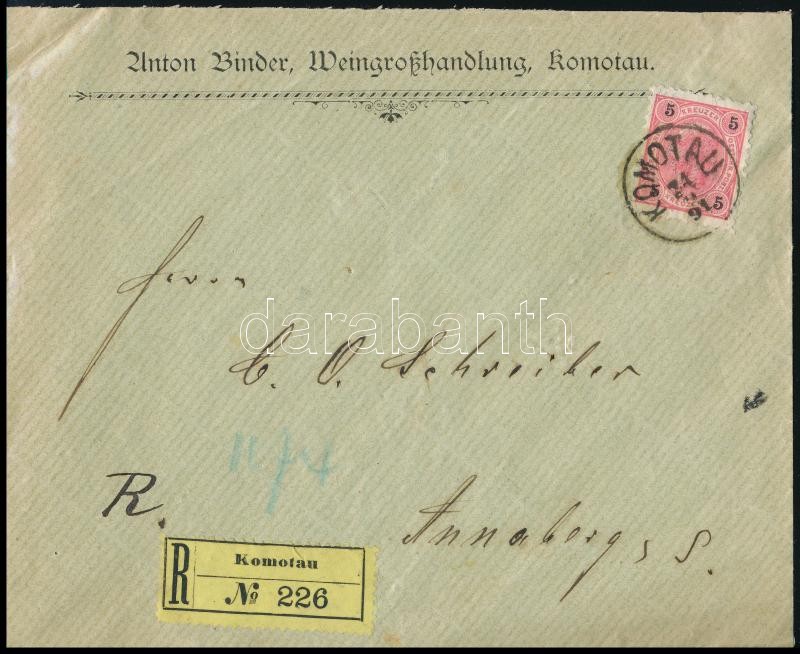 Anton Binder, Weingroßhandlung, Komotau.
5 KREUZER 5
KOMOTAU
24
91
5 5
Herrn
C. O. Schreiber
darabanth
11/4
R.
Annaberg, S.
R Komotau
№ 226